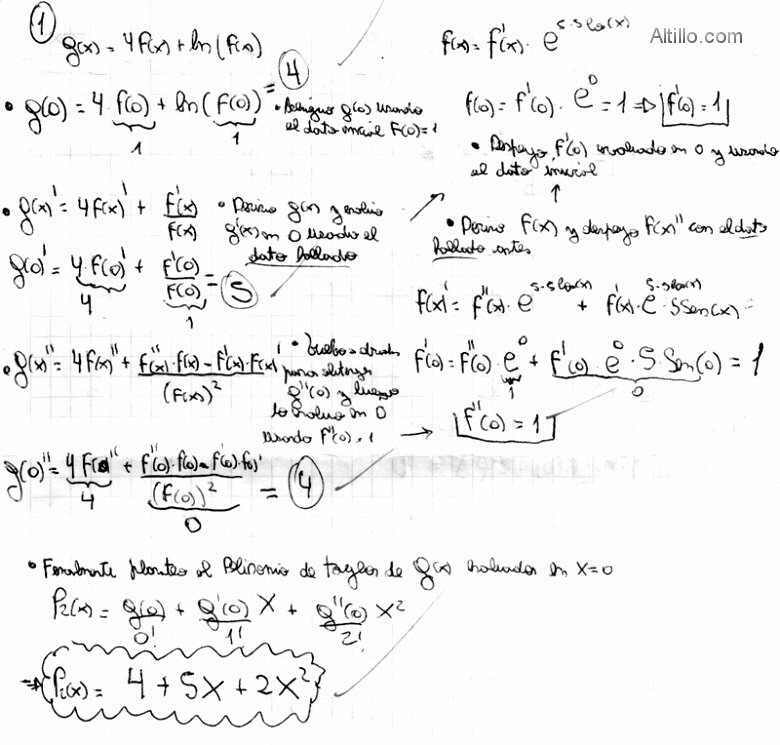 ①
g(x) = 4f(x) + ln(f(x))
• g(0) = 4·f(0) + ln(f(0)) = 4
1 1
• Averiguo g(0) usando
el dato inicial f(0)=1
• g(x)' = 4f(x)' + f'(x)/f(x)
• Derivo g(x) y evaluo
g'(x) en 0 usando el
dato hallado
g(0)' = 4·f(0)' + f'(0)/f(0) = 5
4 1
• g(x)'' = 4f(x)'' + (f''(x)·f(x) – f'(x)·f(x)')/(f(x))²
• Vuelvo a derivar
para obtener
g''(0) y luego
lo evaluo en 0
usando f''(0)=1 →
g(0)'' = 4f(0)'' + (f''(0)·f(0) – f'(0)·f(0)')/(f(0))² = 4
4 0
Altillo.com
f(x) = f'(x)·e^(5-5cos(x))
f(0) = f'(0)·e⁰ = 1 ⇒ f'(0) = 1
• Despejo f'(0) evaluado en 0 y usando
el dato inicial
↑
• Derivo f(x) y despejo f(x)'' con el dato
hallado antes
f(x)' = f''(x)·e^(5-5cos(x)) + f'(x)·e^(5-5cos(x))·5Sen(x) =
f'(0) = f''(0)·e⁰ + f'(0)·e⁰·5·Sen(0) = 1
1 0
f''(0) = 1
• Finalmente planteo el Polinomio de taylor de g(x) evaluado en x=0
P₂(x) = g(0)/0! + g'(0)/1! x + g''(0)/2! x²
⇒ P₂(x) = 4 + 5x + 2x²